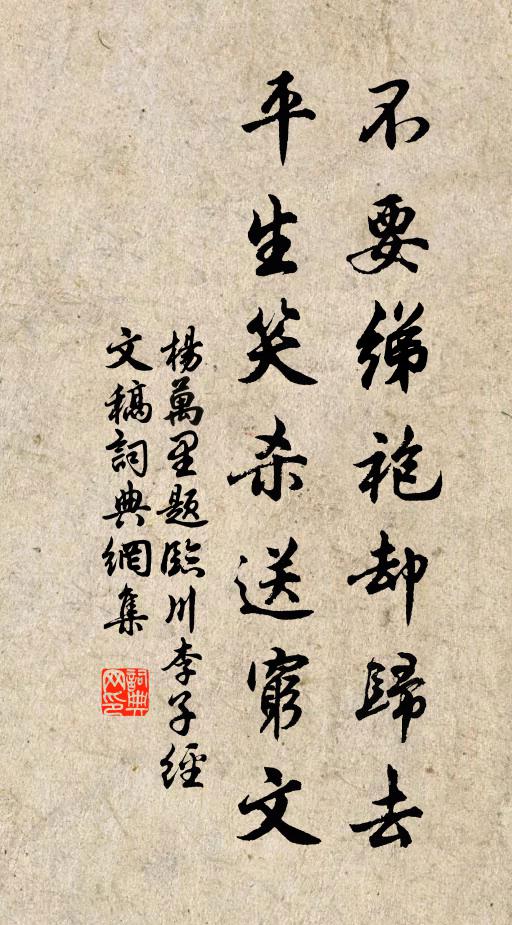 不要綈袍却歸去
平生笑杀送窮文
楊萬里题臨川李子經
文稿詞典網集
詞典网印